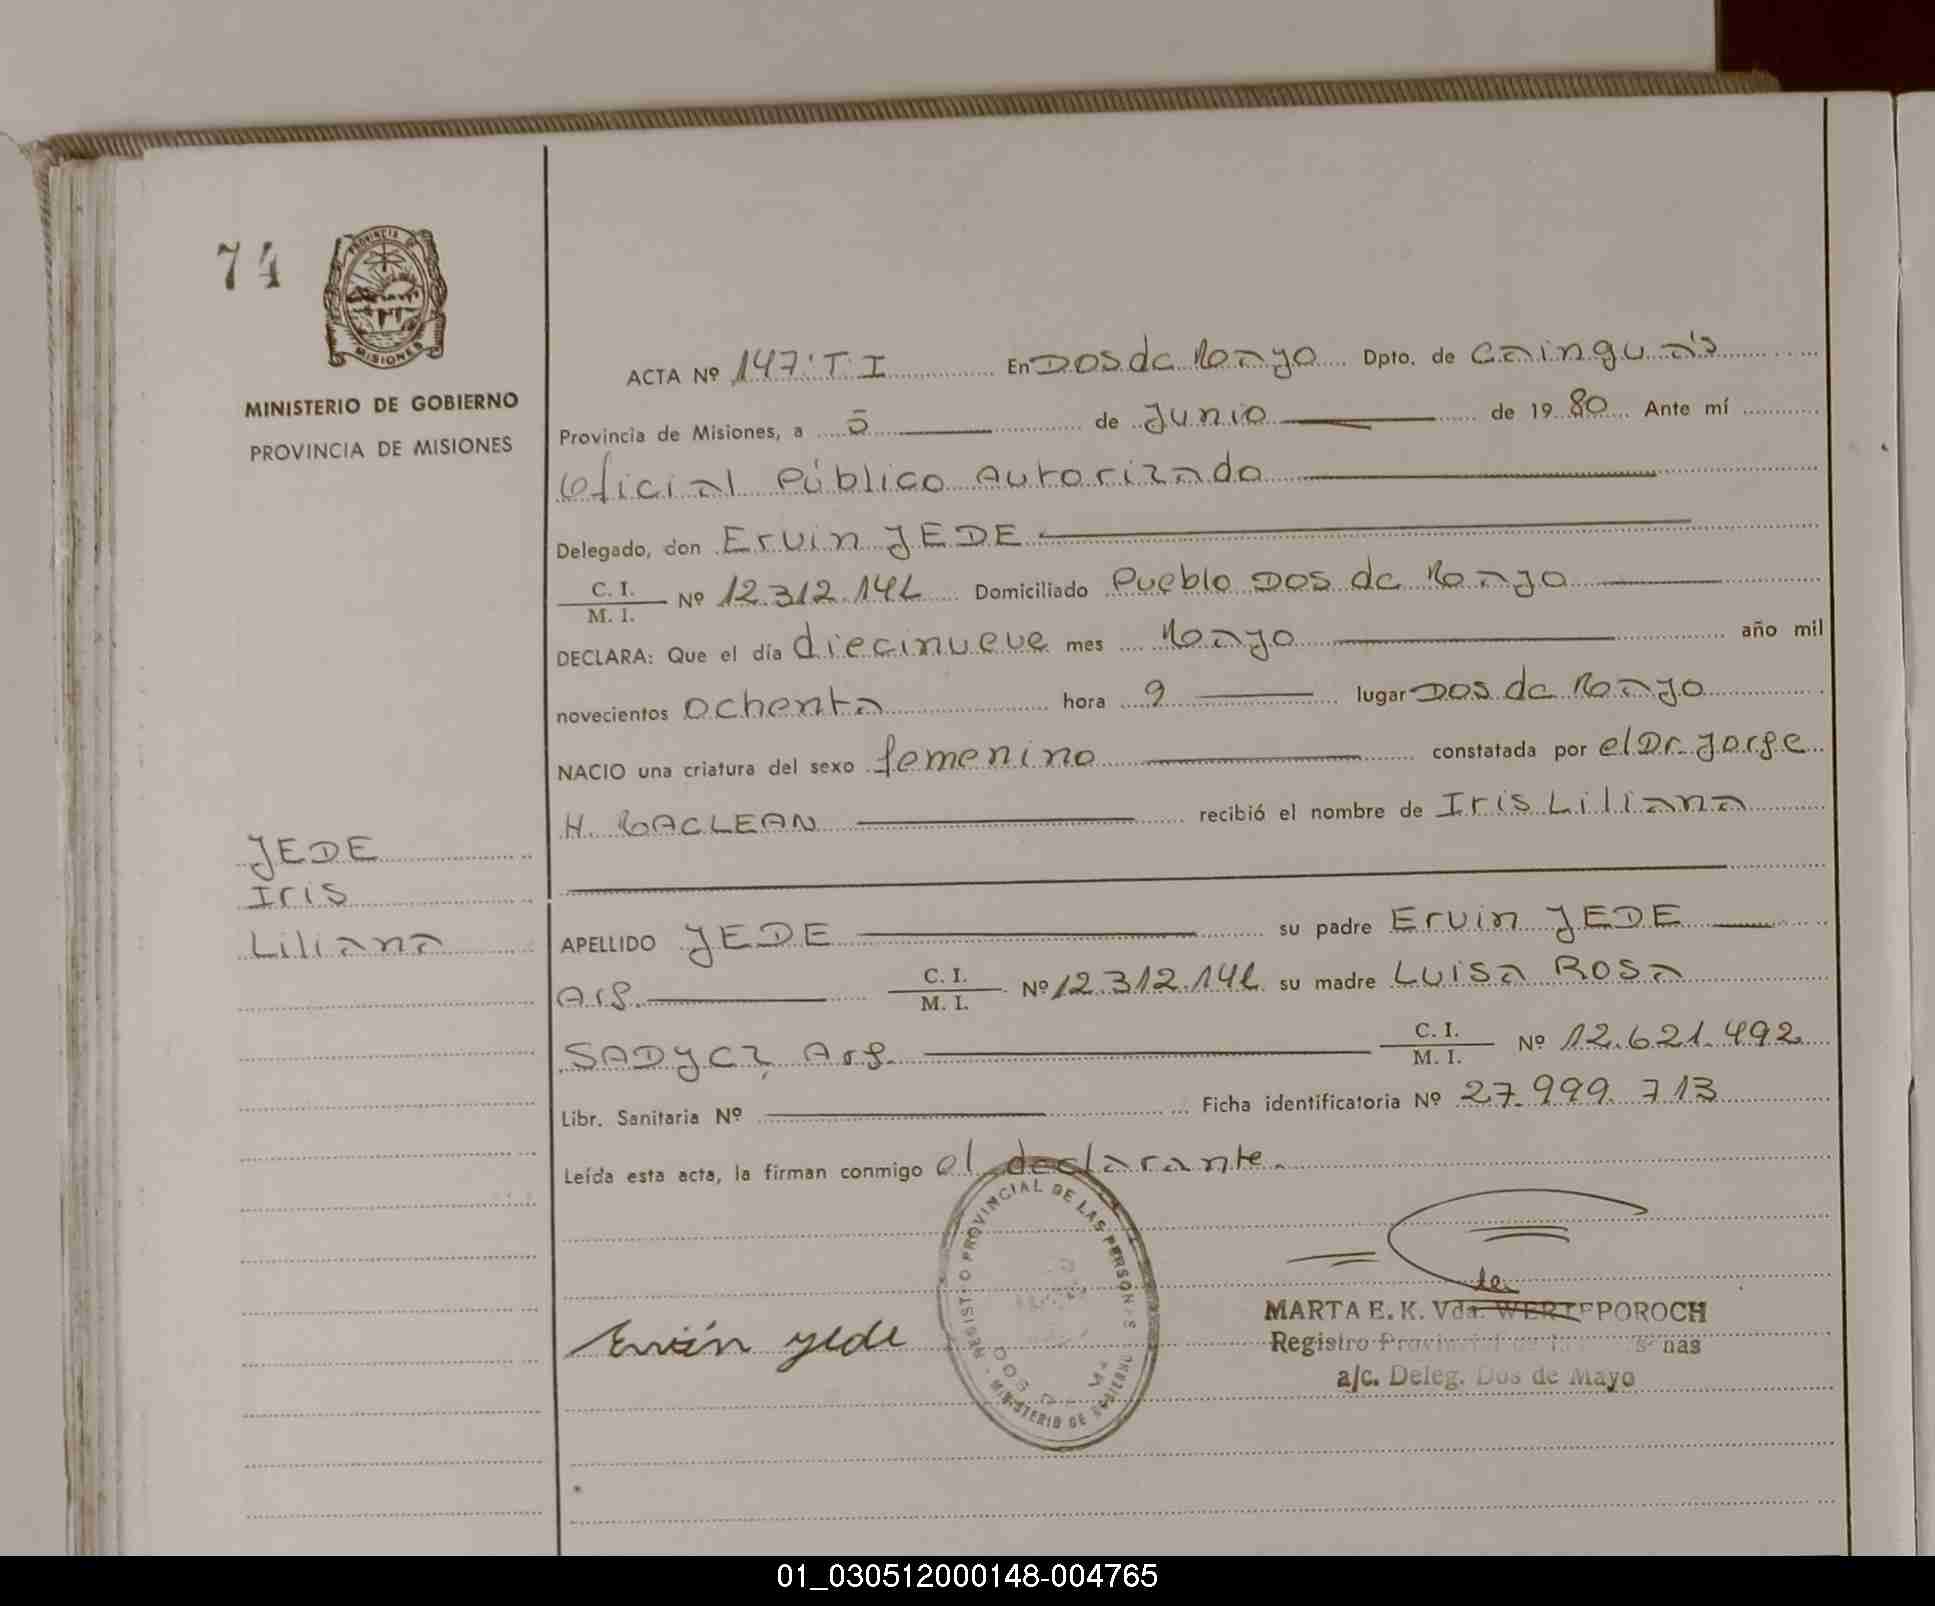 74
PROVINCIA DE
MISIONES
MINISTERIO DE GOBIERNO
PROVINCIA DE MISIONES
JEDE
Iris
Liliana
ACTA Nº 147: T I En Dos de Mayo Dpto. de Cainguás
Provincia de Misiones, a 5 de Junio de 1980 Ante mí
Oficial Público Autorizado
Delegado, don Ervin JEDE
C. I.
M. I. Nº 12.312.14 Domiciliado Pueblo Dos de Mayo
DECLARA: Que el día diecinueve mes Mayo año mil
novecientos ochenta hora 9 lugar Dos de Mayo
NACIO una criatura del sexo femenino constatada por el Dr. Jorge
H. MACLEAN recibió el nombre de Iris Liliana
APELLIDO JEDE su padre Ervin JEDE
Arg. C. I.
M. I. Nº 12.312.14 su madre Luisa Rosa
SADYCZ, Arg. C. I.
M. I. Nº 12.621.492
Libr. Sanitaria Nº Ficha identificatoria Nº 27.999.713
Leída esta acta, la firman conmigo el declarante.
REGISTRO PROVINCIAL DE LAS PERSONAS
MINISTERIO DE GOBIERNO
Ervin Jede
MARTA E. K. Vda. WEREPOROCH
Registro Provincial de las Personas
a/c. Deleg. Dos de Mayo
01_030512000148-004765